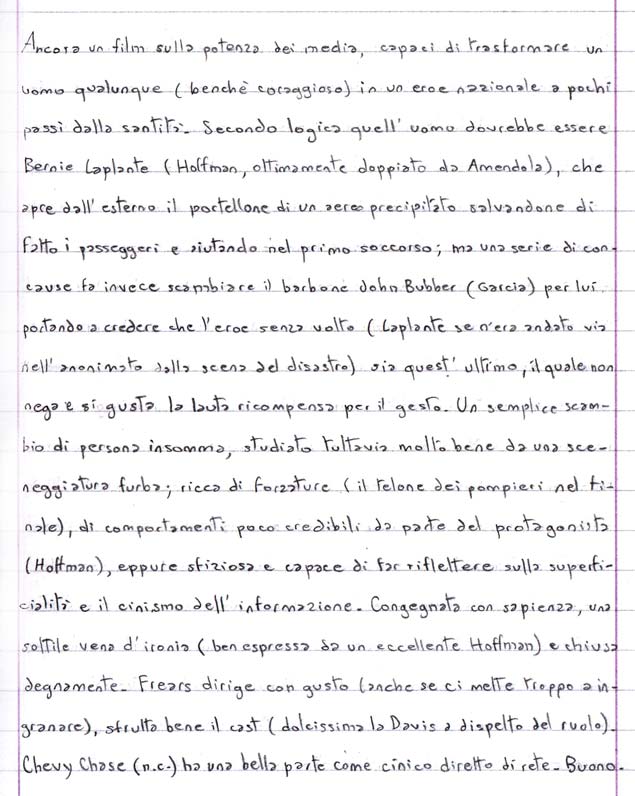 Ancora un film sulla potenza dei media, capaci di trasformare un
uomo qualunque (benchè coraggioso) in un eroe nazionale a pochi
passi dalla santità. Secondo logica quell'uomo dovrebbe essere
Bernie Laplante (Hoffman, ottimamente doppiato da Amendola), che
apre dall'esterno il portellone di un aereo precipitato salvandone di
fatto i passeggeri e aiutando nel primo soccorso; ma una serie di con-
cause fa invece scambiare il barbone John Bubber (Garcia) per lui,
portando a credere che l'eroe senza volto (Laplante se n'era andato via
nell'anonimato dalla scena del disastro) sia quest'ultimo, il quale non
nega e si gusta la lauta ricompensa per il gesto. Un semplice scam-
bio di persona insomma, studiato tuttavia molto bene da una sce-
neggiatura furba; ricca di forzature (il telone dei pompieri nel fi-
nale), di comportamenti poco credibili da parte del protagonista
(Hoffman), eppure sfiziosa e capace di far riflettere sulla superfi-
cialità e il cinismo dell'informazione. Congegnata con sapienza, una
sottile vena d'ironia (ben espressa da un eccellente Hoffman) e chiusa
degnamente. Frears dirige con gusto (anche se ci mette troppo a in-
granare), sfrutta bene il cast (dolcissima la Davis a dispetto del ruolo).
Chevy Chase (n.c.) ha una bella parte come cinico diretto di rete. Buono.